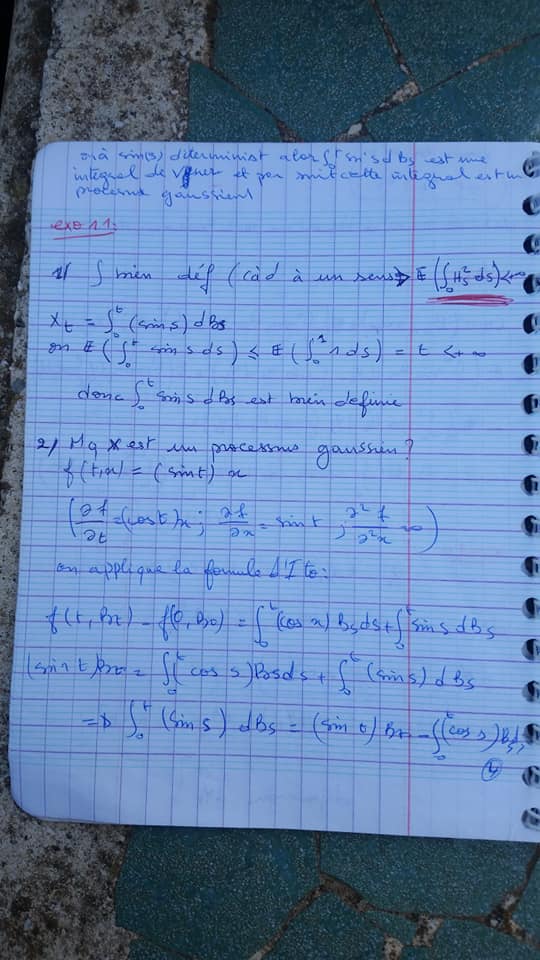 sin(s) déterminist alor ∫₀ᵗ sin s dBs est une
intégral de et par suit cette intégral est un
processus gaussien
exo 11:
1/ ∫ bien déf (càd à un sens → E(∫₀ Hs² ds) < +∞
Xt = ∫₀ᵗ (sin s) dBs
on E(∫₀ᵗ sin s ds) ≤ E(∫₀¹ 1 ds) = t < +∞
donc ∫₀ᵗ sin s dBs est bien definie
2/ Mq X est un processus gaussien ?
f(t,x) = (sin t) x
(∂f/∂t = (cos t)x ; ∂f/∂x = sin t ; ∂²f/∂²x = 0)
on applique la formule d'Ito:
f(t, Bt) - f(0, B0) = ∫₀ᵗ (cos s) Bs ds + ∫₀ᵗ sin s dBs
(sin t) Bt = ∫₀ᵗ (cos s) Bs ds + ∫₀ᵗ (sin s) dBs
=> ∫₀ᵗ (sin s) dBs = (sin t) Bt - ∫₀ᵗ (cos s) Bs ds